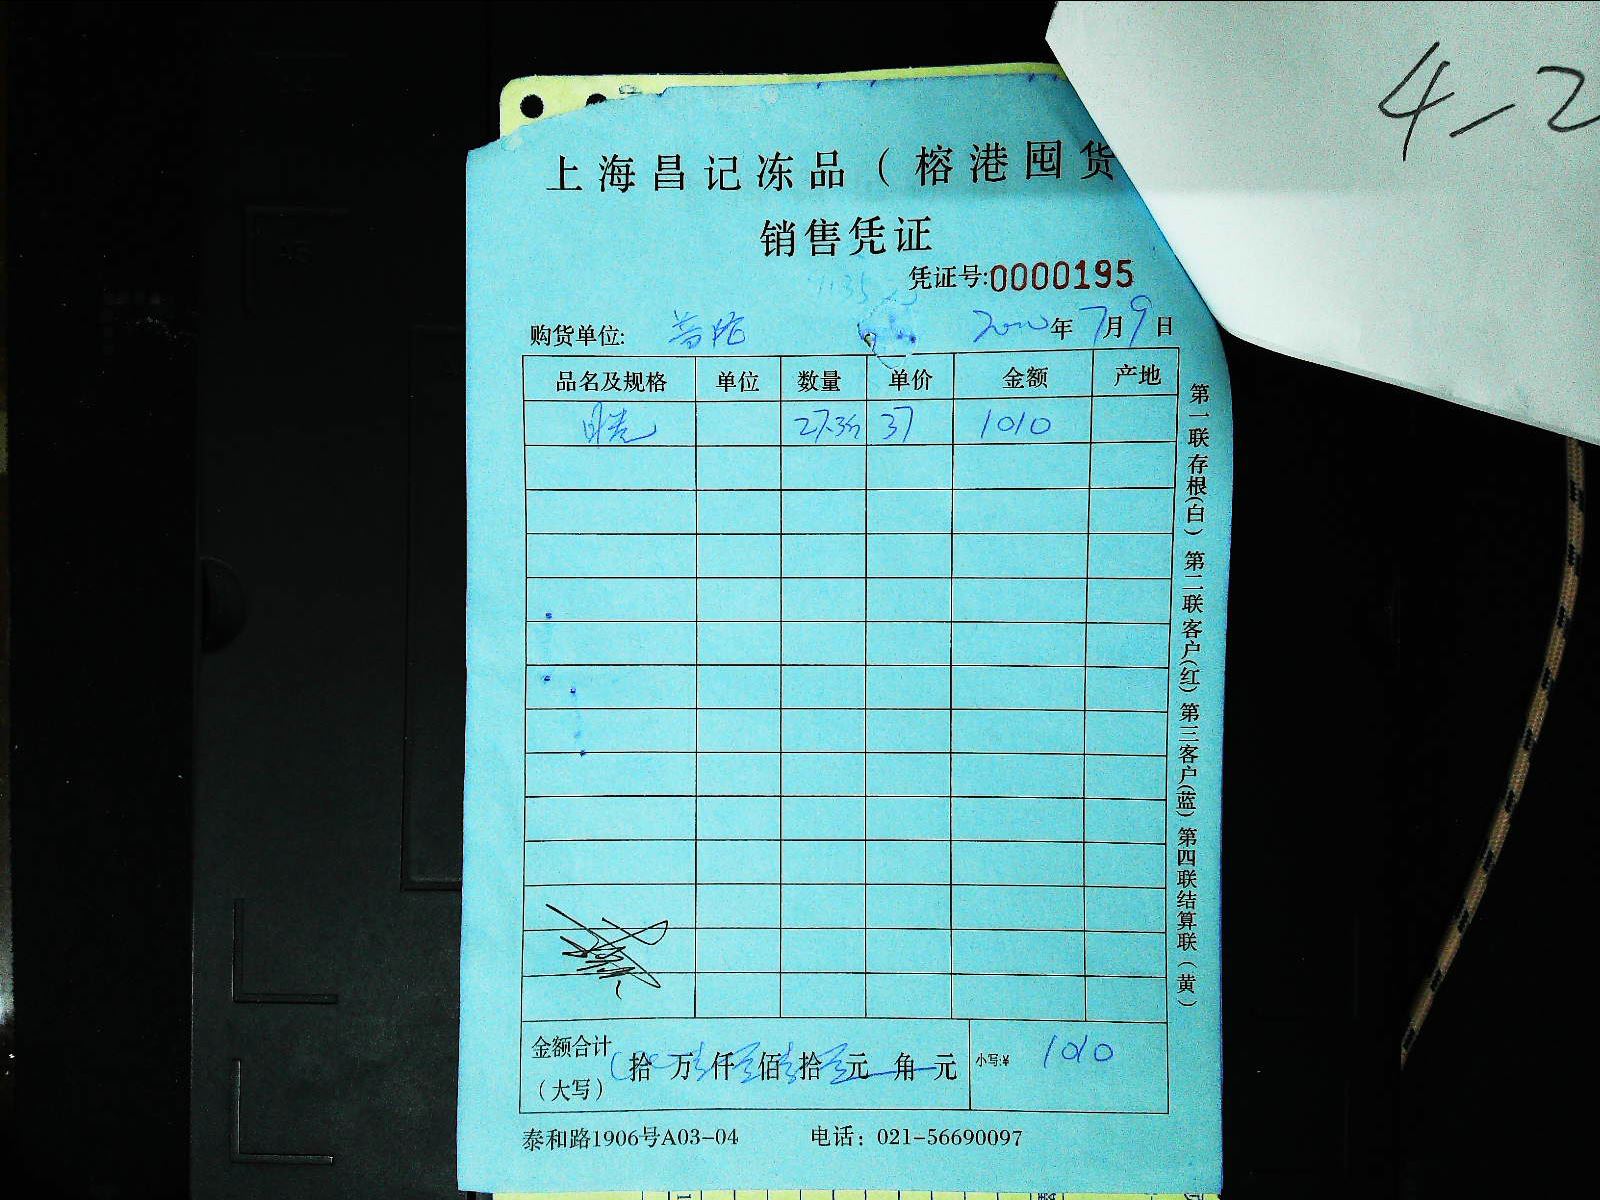 4-2
上海昌记冻品（榕港囤货
销售凭证
凭证号:0000195
购货单位: 年7月9日
品名及规格 单位 数量 单价 金额 产地
37 1010
金额合计（大写） 拾 万 仟 佰 拾 元 角 元 小写:¥ 1010
泰和路1906号A03-04 电话：021-56690097
第一联存根(白) 第二联客户(红) 第三客户(蓝) 第四联结算联（黄）